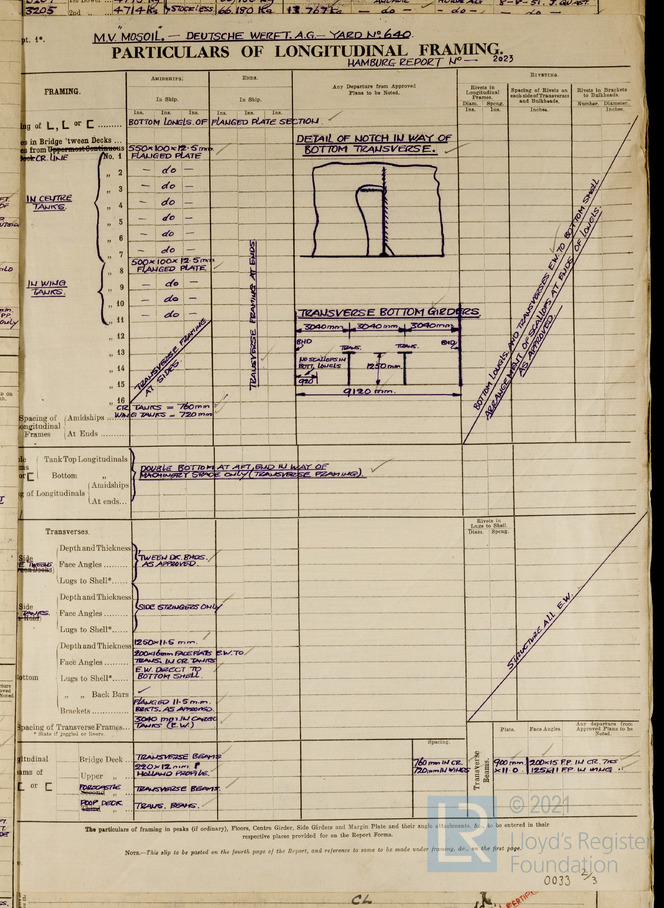 3205 2nd 4714 Kg STOCKLESS 66.180 Kg 13.767 Kg — do — — do — — do —
M.V. MOSOIL. — DEUTSCHE WERFT. A.G. — YARD No. 640.
pt. 1*.
PARTICULARS OF LONGITUDINAL FRAMING.
HAMBURG REPORT No — 2023
FRAMING.
AMIDSHIPS.
In Ship.
Ins. Ins. Ins.
ENDS.
In Ship.
Ins. Ins. Ins.
Any Departure from Approved
Plans to be Noted.
RIVETING.
Rivets in
Longitudinal
Frames.
Diam. Spcng.
Ins. Ins.
Spacing of Rivets on
each side of Transverses
and Bulkheads.
Inches.
Rivets in Brackets
to Bulkheads.
Number. Diameter.
Inches.
ng of L, L or [ ........
BOTTOM LONGLS. OF FLANGED PLATE SECTION
es in Bridge 'tween Decks ...
es from Uppermost Continuous
Deck CR. LINE No. 1
550×100×12.5 mm
FLANGED PLATE
„ 2 — do —
„ 3 — do —
IN CENTRE
TANKS.
„ 4 — do —
„ 5 — do —
„ 6 — do —
„ 7 — do —
„ 8 500×100×12.5 mm
FLANGED PLATE
IN WING
TANKS.
„ 9 — do —
„ 10 — do —
„ 11 — do —
„ 12
„ 13
„ 14
„ 15
„ 16
TRANSVERSE FRAMING
AT SIDES
TRANSVERSE FRAMING AT ENDS
DETAIL OF NOTCH IN WAY OF
BOTTOM TRANSVERSE.
TRANSVERSE BOTTOM GIRDERS
3040 mm 3040 mm 3040 mm
BHD TRANS. TRANS. BHD.
NO SCALLOPS IN
BOTT. LONGLS
920
1250 mm.
9120 mm.
BOTTOM LONGLS. AND TRANSVERSES E.W. TO BOTTOM SHELL
ARRANGEMENT OF SCALLOPS AT ENDS OF LONGLS.
AS APPROVED.
Spacing of
Longitudinal
Frames
Amidships
At Ends ...
CR. TANKS = 760 mm
WING TANKS = 720 mm
Tank Top Longitudinals
Bottom „
g of Longitudinals
Amidships
At ends...
DOUBLE BOTTOM AT AFT. END IN WAY OF
MACHINERY SPACE ONLY (TRANSVERSE FRAMING).
Transverses.
Rivets in
Lugs to Shell.
Diam. Spcng.
Side
Depth and Thickness
Face Angles .......
Lugs to Shell*.....
TWEEN DK. BHDS.
AS APPROVED.
Side
TANKS.
Depth and Thickness
Face Angles ......
Lugs to Shell*.....
SIDE STRINGERS ONLY
Bottom
Depth and Thickness
1250×11.5 mm.
Face Angles ......
200×16 mm FACE FLATS E.W. TO
TRANS. IN CR. TANKS
Lugs to Shell*.....
E.W. DIRECT TO
BOTTOM SHELL
„ „ Back Bars
Brackets ........
FLANGED 11.5 m.m.
BRKTS. AS APPROVED.
Spacing of Transverse Frames...
3040 mm IN CARGO
TANKS (E.W.)
* State if joggled or liners.
STRUCTURE ALL E.W.
Spacing.
Transverse
Beams.
Plate. Face Angles.
Any departure from
Approved Plans to be
Noted.
gitudinal
ams of
[ or [
Bridge Deck TRANSVERSE BEAMS
Upper „ 220×12 m.m.
HOLLAND PROFILE.
760 mm IN CR.
720 mm IN WINGS
900 mm
×11.0
200×15 F.P. IN CR. TKS
125×11 F.P. IN WING „
FORECASTLE
Second „
TRANSVERSE BEAMS
POOP DECK
Third „
TRANS. BEAMS.
The particulars of framing in peaks (if ordinary), Floors, Centre Girder, Side Girders and Margin Plate and their angle attachments, &c., to be entered in their
respective places provided for on the Report Forms.
NOTE.—This slip to be posted on the fourth page of the Report, and reference to same to be made under framing, &c., on the first page.
© 2021
LR
Lloyd's Register
Foundation
0033 2/3
CL